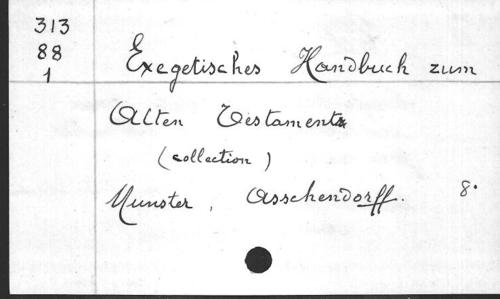 313
88
1
Exegetisches Handbuch zum
Alten Testament
(collection)
Munster, Asschendorff. 8.